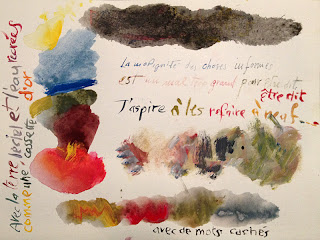 La malignité des choses informes
est un mal trop grand pour être dit
être dit
J'aspire à les refaire à neuf...
avec de mots cachés
Avec la terre, le ciel et l'eau refaités
comme une cassette d'or